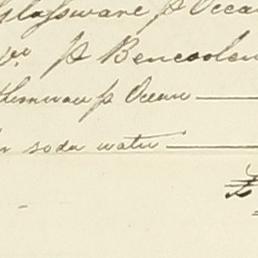 Glassware p Ocean
p Bencoolen
p Ocean
soda water
£